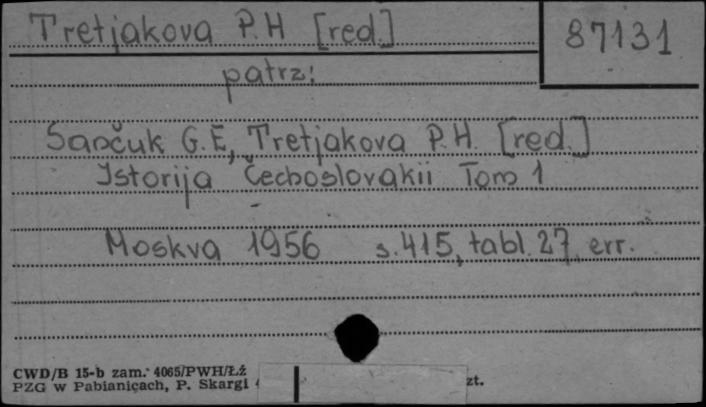 Tretjakova P.H [red.]
87131
patrz:
Sančuk G.E, Tretjakova P.H. [red.]
Istorija Čechoslovakii Tom 1
Moskva 1956 s. 415, tabl. 27, err.
CWD/B 15-b zam. 4065/PWH/Łź
PZG w Pabianicach, P. Skargi
zt.